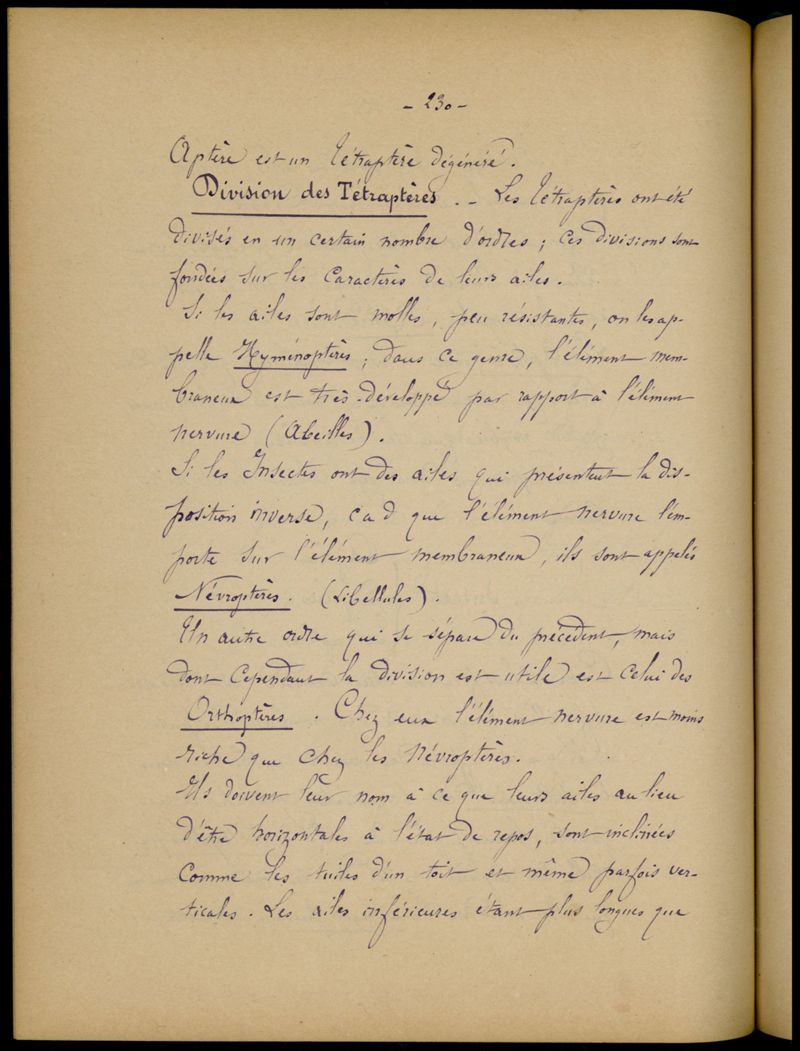 - 230 -
Aptère est un Tétraptère dégénéré.
Division des Tétraptères. - Les Tétraptères ont été
divisés en un certain nombre d'ordres ; ces divisions sont
fondées sur les caractères de leurs ailes.
Si les ailes sont molles, peu résistantes, on les ap-
pelle Hyménoptères ; dans ce genre, l'élément mem-
braneux est très-développé par rapport à l'élément
nervure (Abeilles).
Si les Insectes ont des ailes qui présentent la dis-
position inverse, c a d que l'élément nervure l'em-
porte sur l'élément membraneux, ils sont appelés
Névroptères. (Libellules).
Un autre ordre qui se sépare du précédent, mais
dont cependant la division est utile est celui des
Orthoptères. Chez eux l'élément nervure est moins
riche que chez les Névroptères.
Ils doivent leur nom à ce que leurs ailes au lieu
d'être horizontales à l'état de repos, sont inclinées
comme les tuiles d'un toit et même parfois ver-
ticales. Les ailes inférieures étant plus longues que